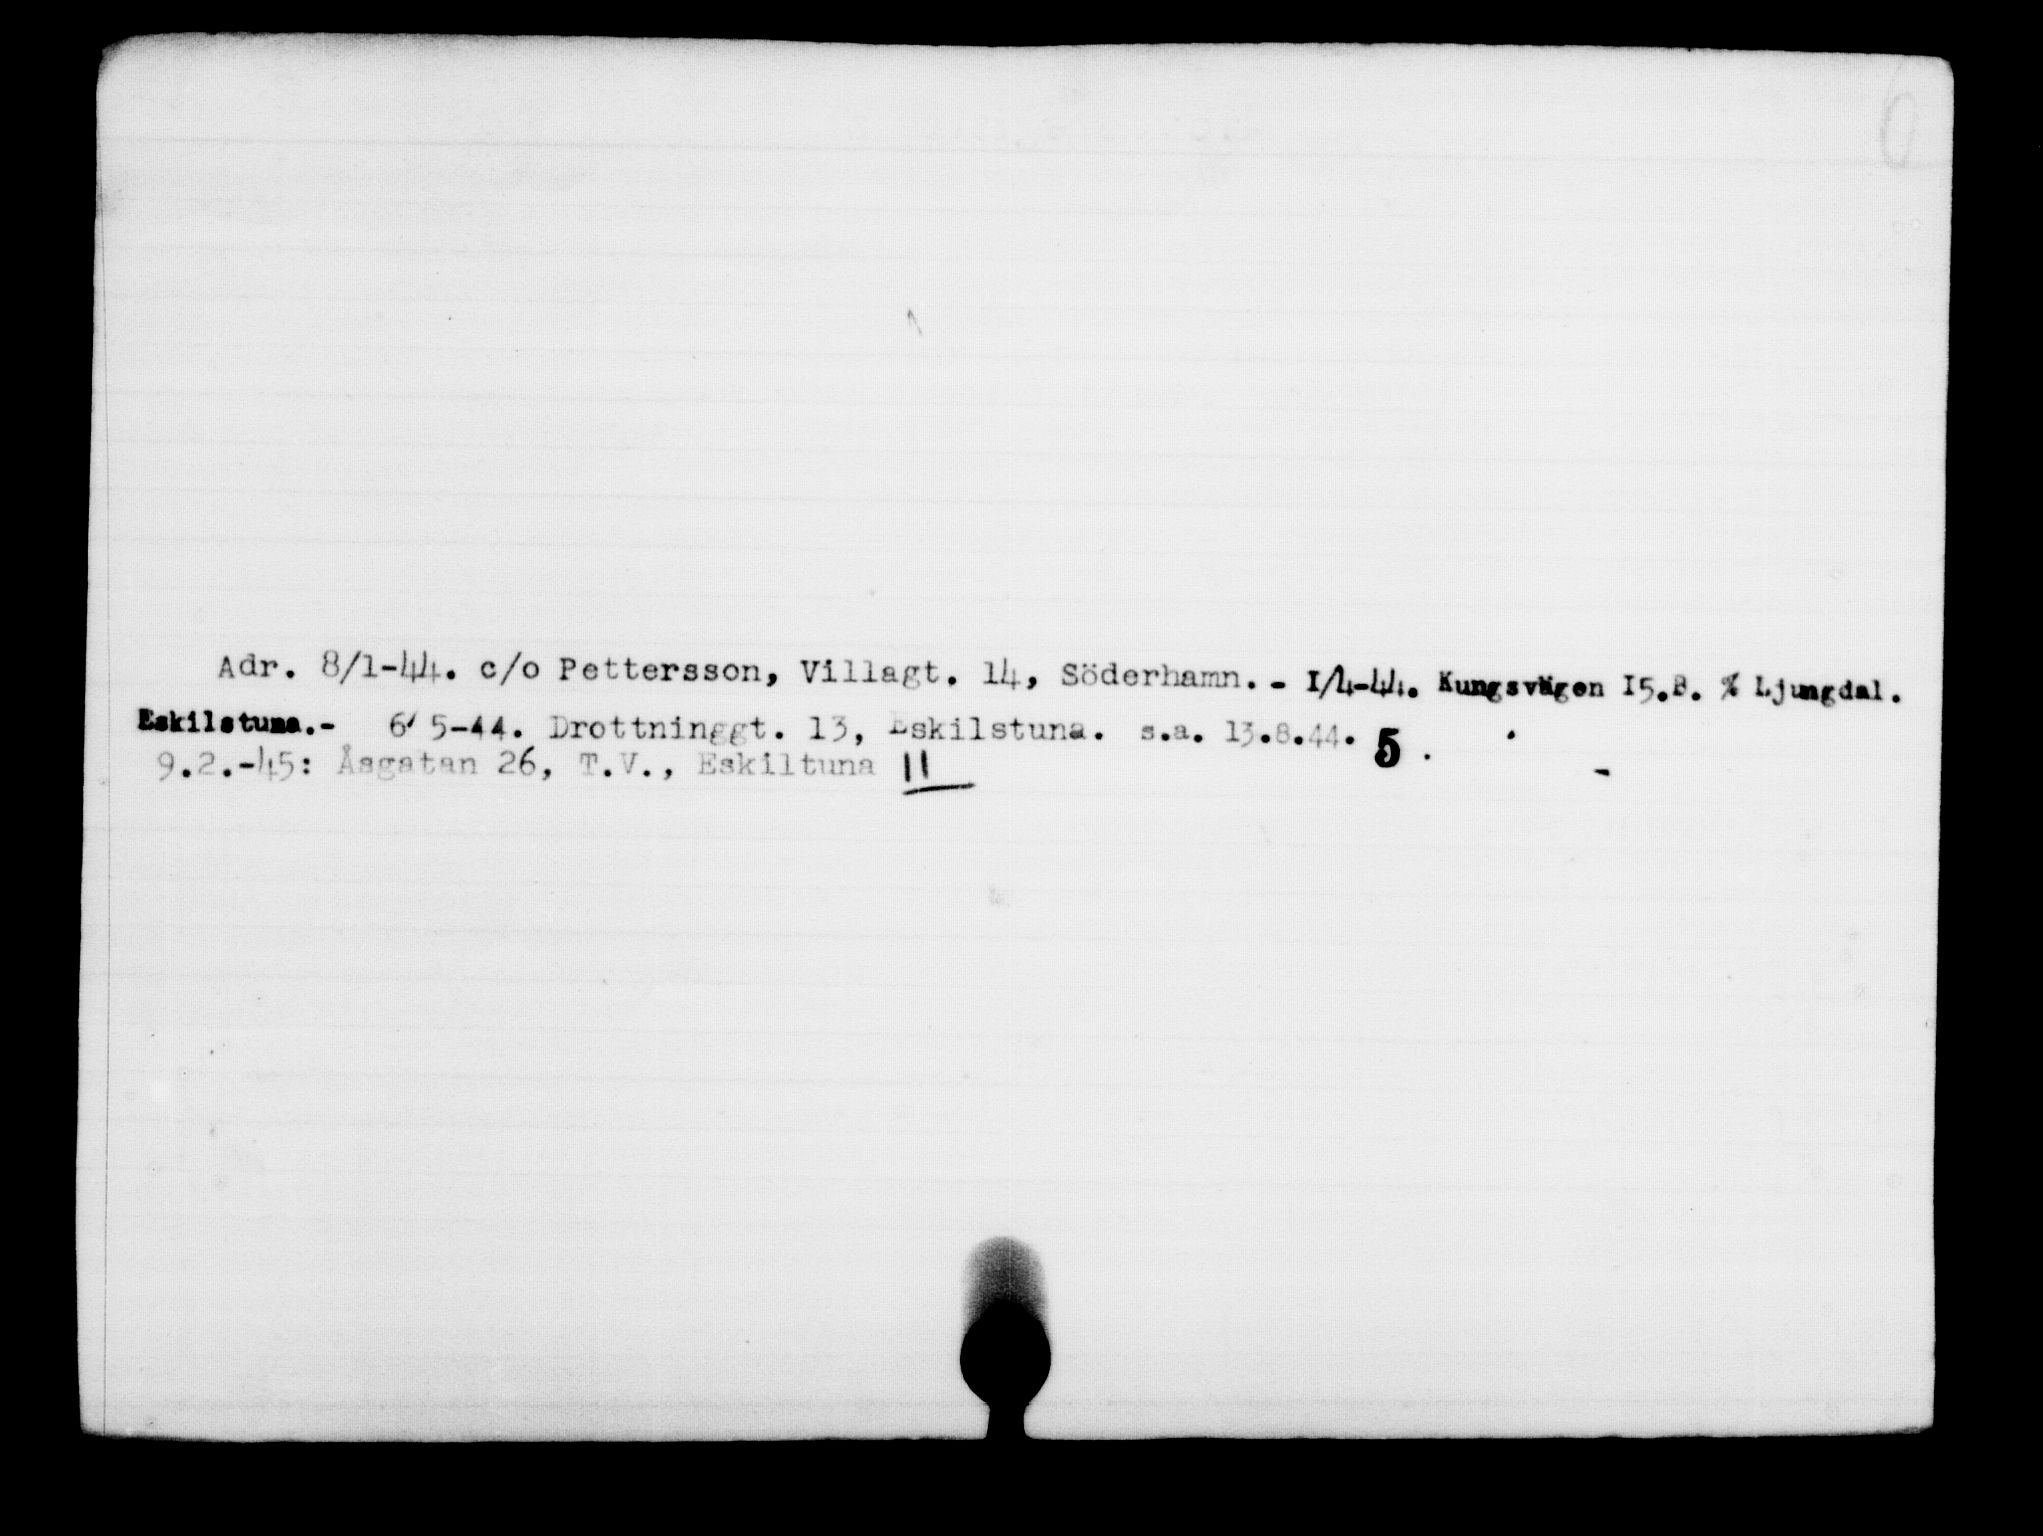 Adr. 8/1-44. c/o Pettersson, Villagt. 14, Söderhamn. - I/4-44. Kungsvägen I5.B. % Ljungdal.
Eskilstuna.- 6/5-44. Drottninggt. 13, Eskilstuna. s.a. 13.8.44. 5.
9.2.-45: Åsgatan 26, T.V., Eskiltuna 11